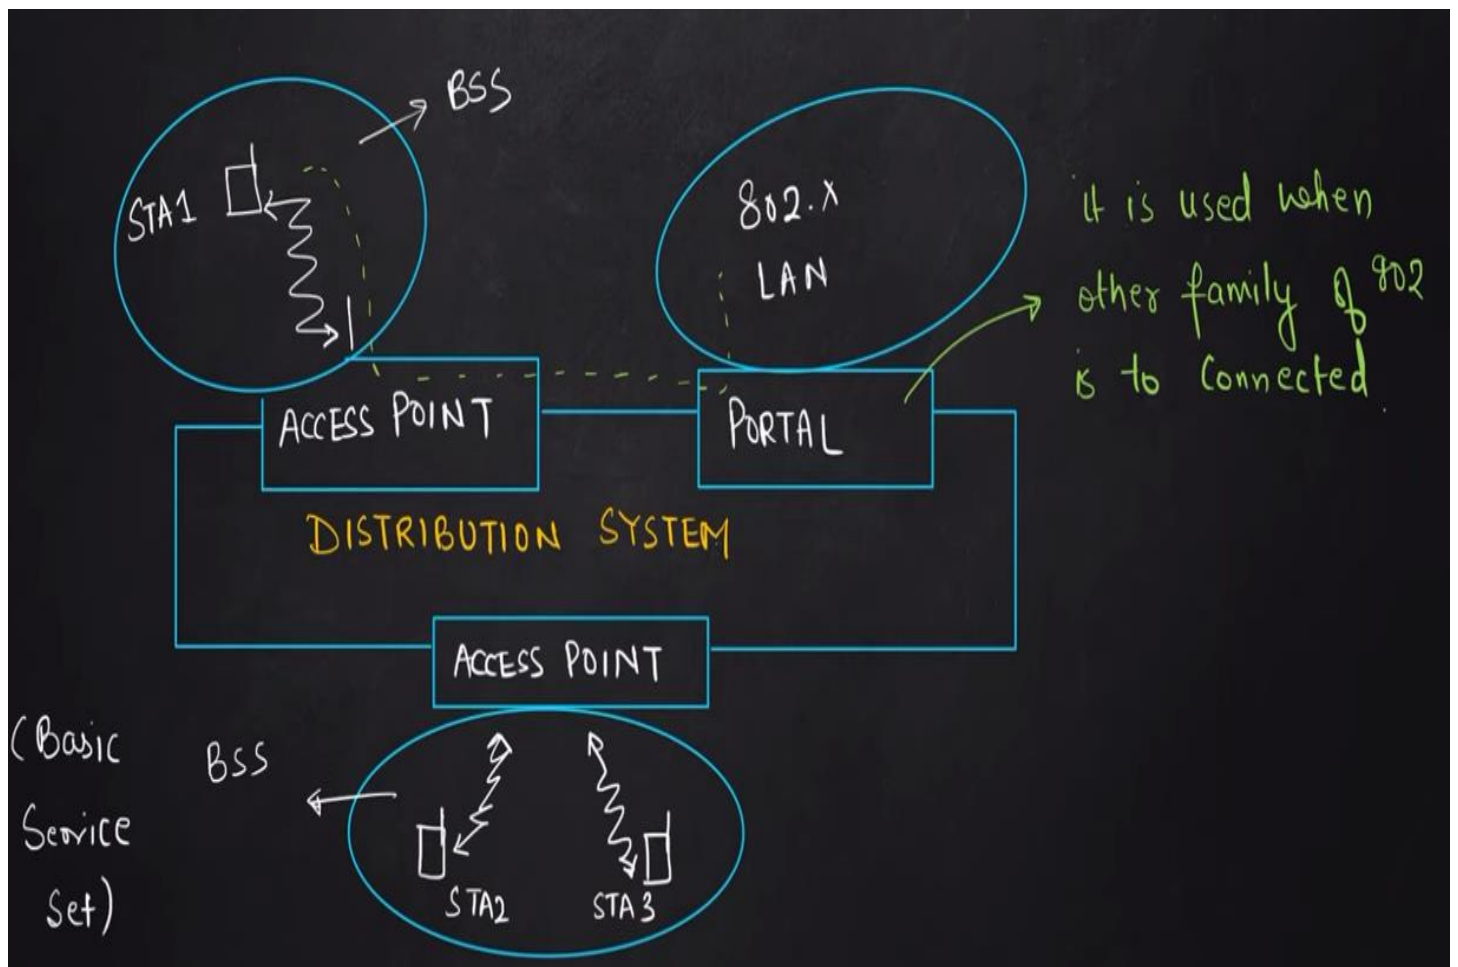 BSS
STA1
802.x
LAN
it is used when
other family of 802
is to Connected.
ACCESS POINT
PORTAL
DISTRIBUTION SYSTEM
ACCESS POINT
(Basic
Service
Set)
BSS
STA2
STA3